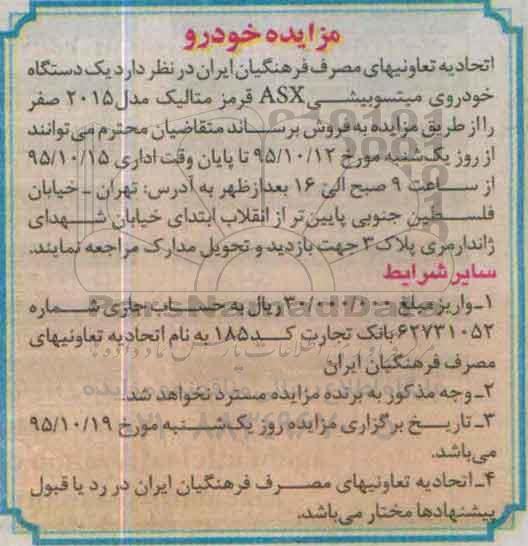 مزایده خودرو
اتحادیه تعاونیهای مصرف فرهنگیان ایران در نظر دارد یک دستگاه
خودروی میتسوبیشی ASX قرمز متالیک مدل ۲۰۱۵ صفر
را از طریق مزایده به فروش برساند متقاضیان محترم می‌توانند
از روز یک‌شنبه مورخ ۹۵/۱۰/۱۲ تا پایان وقت اداری ۹۵/۱۰/۱۵
از ساعت ۹ صبح الی ۱۶ بعدازظهر به آدرس: تهران - خیابان
فلسطین جنوبی پایین‌تر از انقلاب ابتدای خیابان شهدای
ژاندارمری پلاک ۳ جهت بازدید و تحویل مدارک مراجعه نمایند.
سایر شرایط
۱ـ واریز مبلغ ۳۰/۰۰۰/۰۰۰ ریال به حساب جاری شماره
۶۲۷۳۱۰۵۲ بانک تجارت کد ۱۸۵ به نام اتحادیه تعاونیهای
مصرف فرهنگیان ایران
۲ـ وجه مذکور به برنده مزایده مسترد نخواهد شد.
۳ـ تاریخ برگزاری مزایده روز یک‌شنبه مورخ ۹۵/۱۰/۱۹
می‌باشد.
۴ـ اتحادیه تعاونیهای مصرف فرهنگیان ایران در رد یا قبول
پیشنهادها مختار می‌باشد.